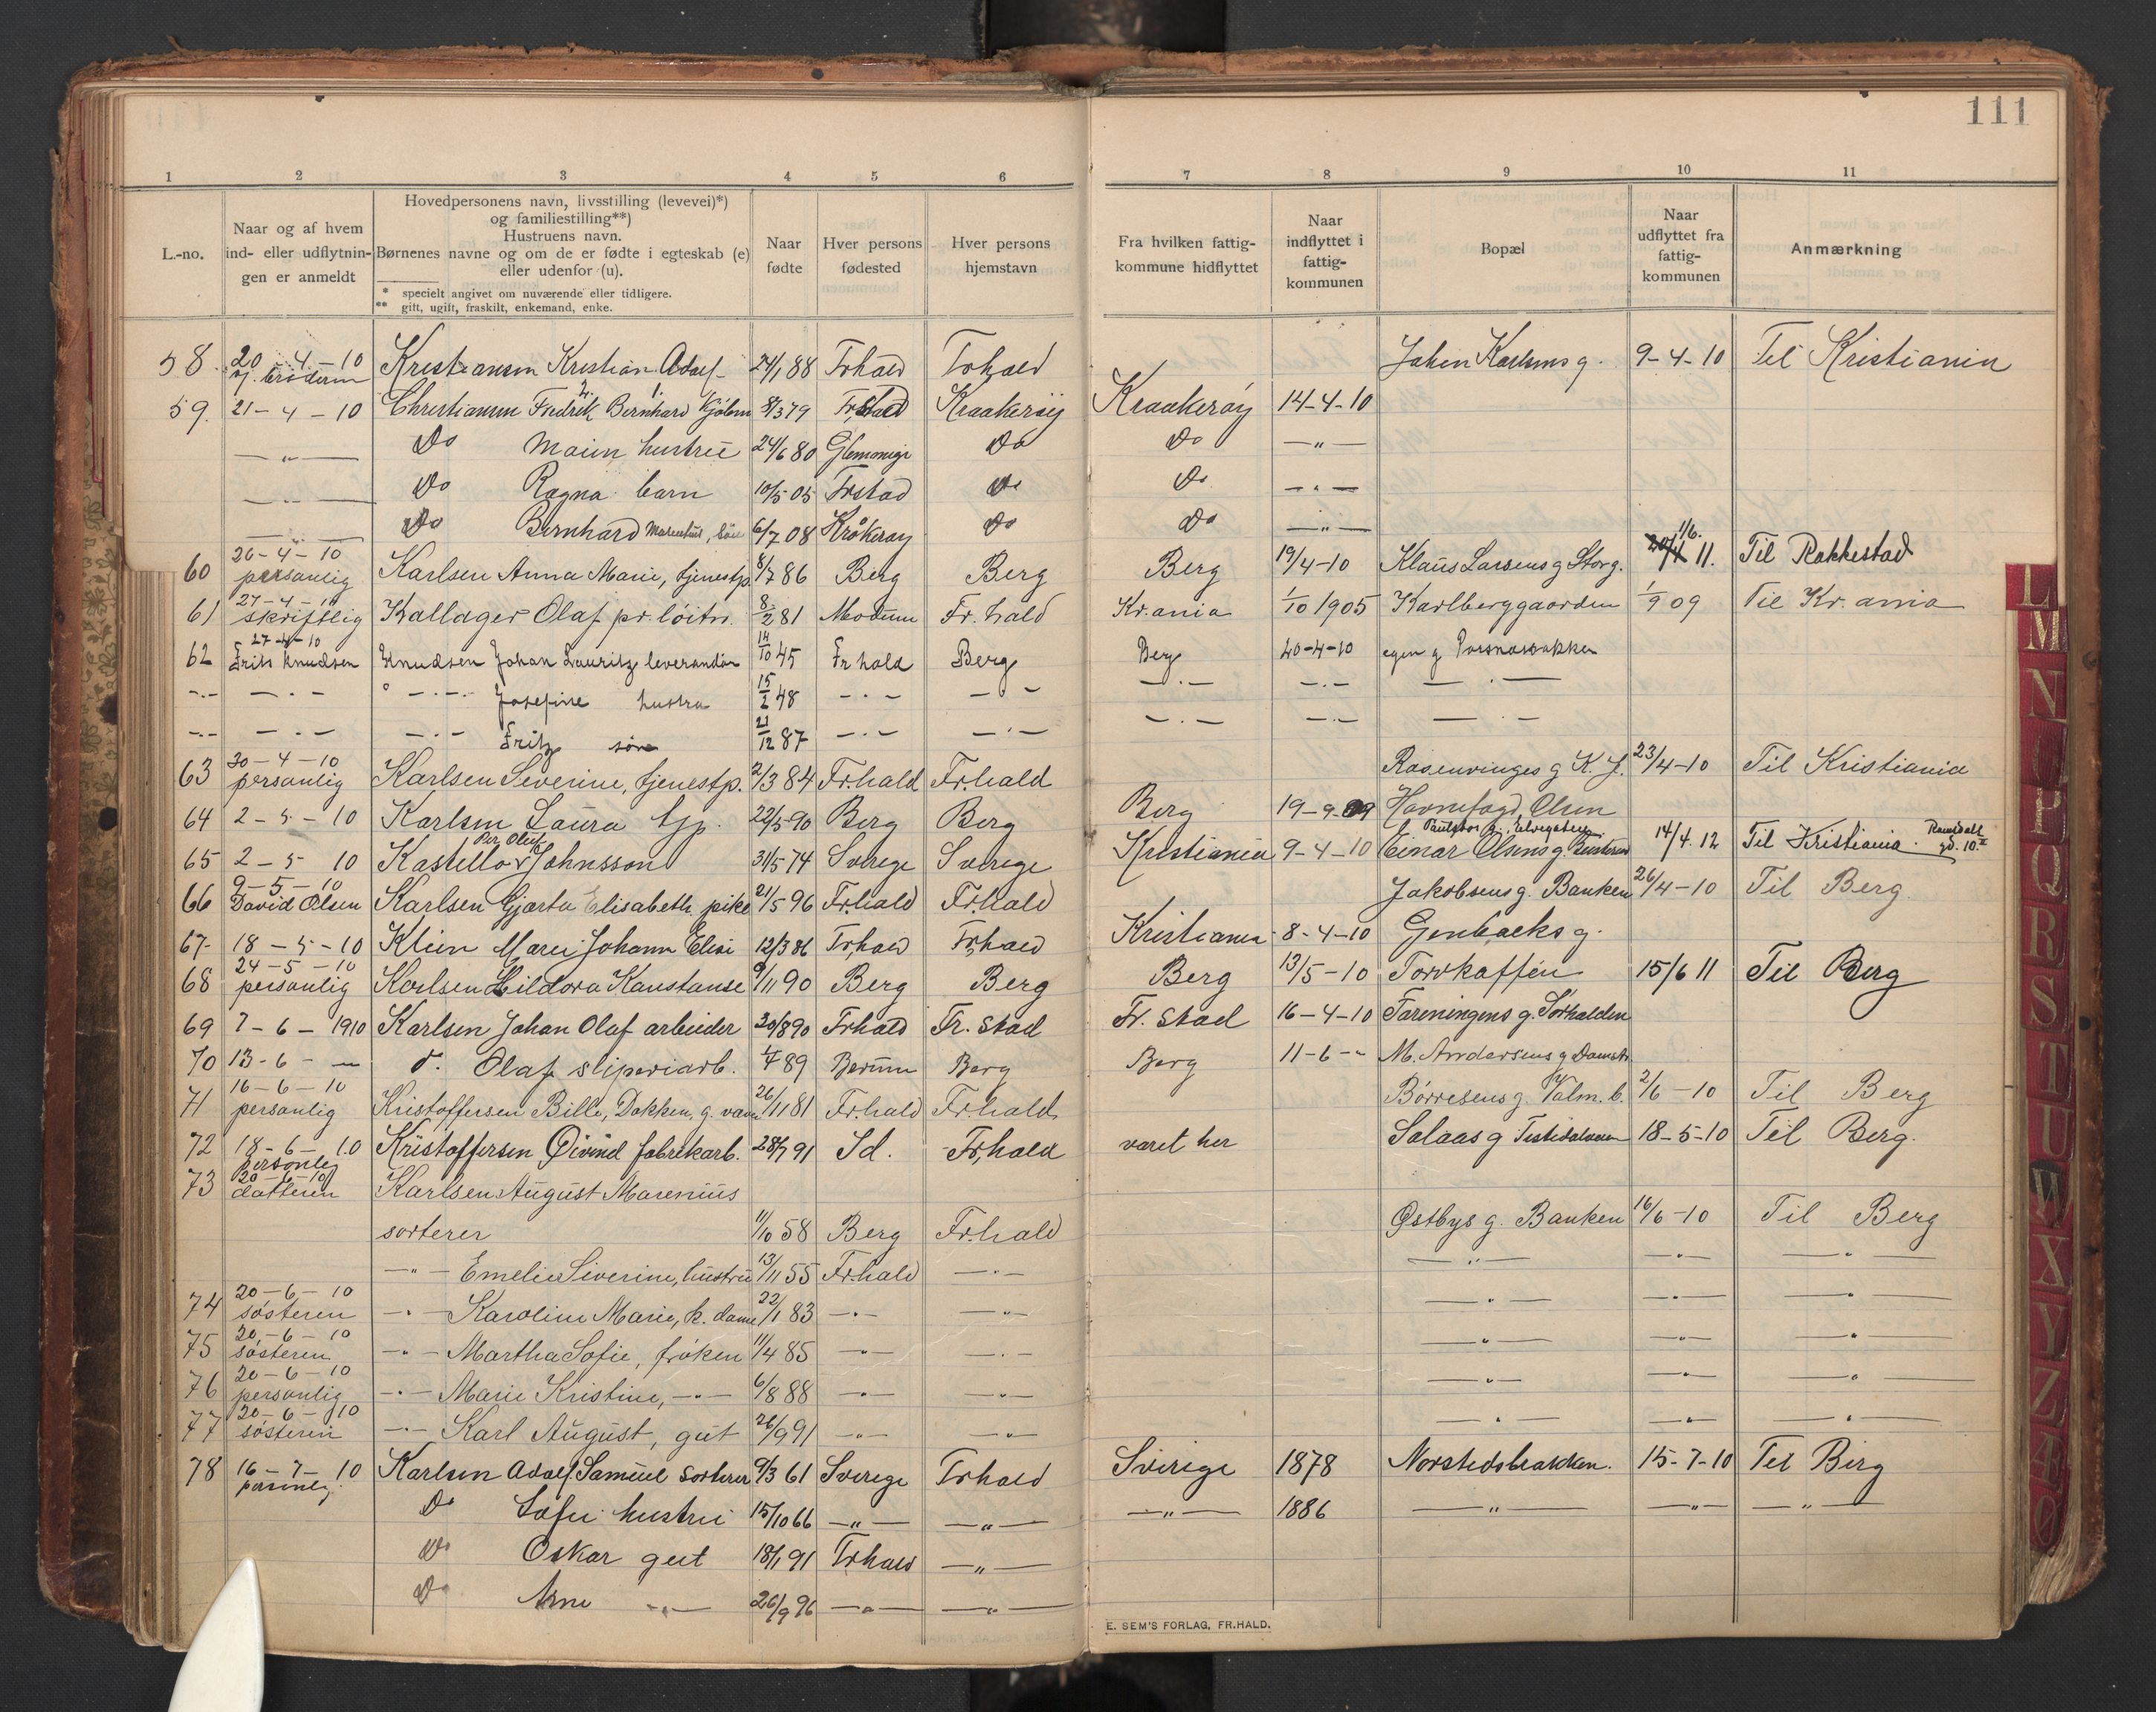 111
1 2 3 4 5 6 7 8 9 10 11
L.-no.
Naar og af hvem ind- eller udflytningen er anmeldt
Hovedpersonens navn, livsstilling (levevei)*)
og familiestilling**)
Hustruens navn.
Børnenes navne og om de er fødte i egteskab (e)
eller udenfor (u).
* specielt angivet om nuværende eller tidligere.
** gift, ugift, fraskilt, enkemand, enke.
Naar fødte
Hver persons fødested
Hver persons hjemstavn
Fra hvilken fattigkommune hidflyttet
Naar indflyttet i fattigkommunen
Bopæl
Naar udflyttet fra fattigkommunen
Anmærkning
58. 20-4-10 broderen Kristiansen Kristian Adolf 24/1 88 Frhald Frhald Johan Karlsens g. 9-4-10 Til Kristiania
59. 21-4-10 Christiansen Fredrik Bernhard 8/3 79 Fr.stad Kraakerøy Kraakerøy 14-4-10
—"— Do hustru 24/6 80 Do Do —"—
—"— Do Ragna barn 10/5 05 Frstad Do Do —"—
—"— Do Bernhard 6/7 08 Kråkerøy Do Do —"—
60 26-4-10 personlig Karlsen Anna Marie, tjenestp. 8/7 86 Berg Berg Berg 19/4-10 Klaus Larsens g Storg. 1/6. 11. Til Rakkestad
61 27-4-10 skriftlig Kallager Olaf pr. løitn. 8/2 81 Modum Fr.hald Kr.ania 1/10 1905 Karlberggaarden 1/9 09 Til Kr.ania
62 27-4-10 Frits Knudsen Knudsen Johan Lauritz leverandør 14/10 45 Fr hald Berg Berg 20-4-10 egen g
—.— —.— —.— Josefine hustru 15/2 48 —.— —.— —.— —.— —.—
—.— —.— —.— Fritz søn 21/12 87 —.— —.— —.— —.— —.—
63 30-4-10 personlig Karlsen Severine, tjenestp. 2/3 84 Fr.hald Fr.hald Rosenvinges g K. J. 23/4-10 Til Kristiania
64 2-5-10 Karlsen Laura tjp. 22/5 90 Berg Berg Berg 19-9-09 Havnefogd Olsen
65 2-5 10 Kastello Per Oluf Johnsson 31/5 74 Sverige Sverige Kristiania 9-4-10 Einar Olsens g. 14/4. 12 Til Kristiania.
66 9-5-10 David Olsen Karlsen Gjærta Elisabeth pike 21/5 96 Fr.hald Fr.hald Jakobsens g. Banken 26/4-10 Til Berg.
67- 18-5-10 Klein Marie Johann Elise 12/3 86 Fr,hald Fr,hald Kristiania 8-4-10 Genbacks g.
68 24-5-10 personlig Karlsen Hildora Konstanse 9/11 90 Berg Berg Berg 13/5-10 Torvkaffén 15/6 11 Til Berg
69 7-6-1910 Karlsen Johan Olaf arbeider 20/8 90 Frhald Fr. stad Fr. stad 16-4-10 Foreningens g. Sørhalden
70 13-6-— d. Olaf sliperiarb. 1/4 89 Bærum Berg Berg 11-6-- M. Andersens g Damstr.
71 16-6-10 personlig Kristoffersen Bille, Dokken, g. 26/11 81 Fr.hald Fr.hald Børresens g. Valm. b. 2/6-10 Til Berg
72 18-6-10 personlig Kristoffersen Øivind fabrikarb. 28/7 91 Id. Fr,hald været her Solaas g Tistedalveien 18-5-10 Til Berg.
73 20-6-10 datteren Karlsen August Marenius
sorterer 11/10 58 Berg Fr.hald Østbys g. Banken 16/6-10 Til Berg
—"— Emelie Siverine, hustru 13/11 55 Fr.hald —"— —"— —"— —"—
74 20-6-10 søsteren —"— Karoline Marie, k. dame 22/1 83 —"— —"— —"— —"— —"—
75 20-6-10 søsteren —"— Martha Sofie, frøken 11/4 85 —"— —"— —"— —"— —"—
76 20-6-10 personlig —"— Marie Kristine, —"— 6/8 88 —"— —"— —"— —"— —"—
77 20-6-10 søsteren —"— Karl August, gut 26/9 91 —"— —"— —"— —"— —"—
78 16-7-10 personlig. Karlsen Adolf Samuel sorterer 9/3 61 Sverige Frhald Sverige 1878 Norstedsbakken. 15-7-10 Til Berg
Do Sofie hustru 15/10 66 —"— —"— —"— 1886 —"— —"— —"—
Do Oskar gut 18/1 91 Frhald —"—
Do Arne —"— 26/9 96 —"— —"—
E. SEM'S FORLAG, FR.HALD.
L
M
N
P
Q
R
S
T
U
W
X
Y
Z
Æ
Ø